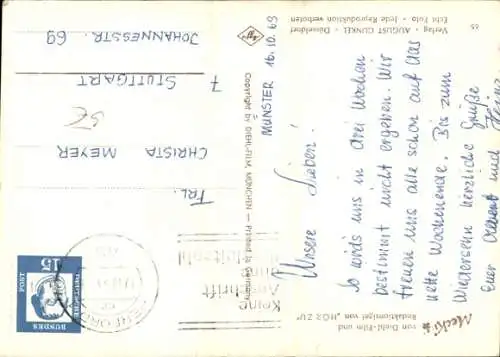 Verlag - AUGUST GUNKEL - Düsseldorf
Echt Foto - Jede Reproduktion verboten
65
MÜNSTER 16.10.63
Unsere Lieben!
So wirds uns in drei Wochen
bestimmt nicht ergehen. Wir
freuen uns alle schon auf das
nette Wochenende. Bis zum
Wiedersehn herzliche Grüße
Euer und Heinz
Mecki
von Diehl-Film und
Redaktionsigel von „HÖR ZU“
Copyright by DIEHL-FILM, MÜNCHEN — Printed in Germany
FRL.
CHRISTA MEYER
7 STUTTGART
JOHANNESSTR. 69
15
DEUTSCHE
BUNDES
POST
HERFORD
Keine
Anschrift
ohne
Postleitzahl